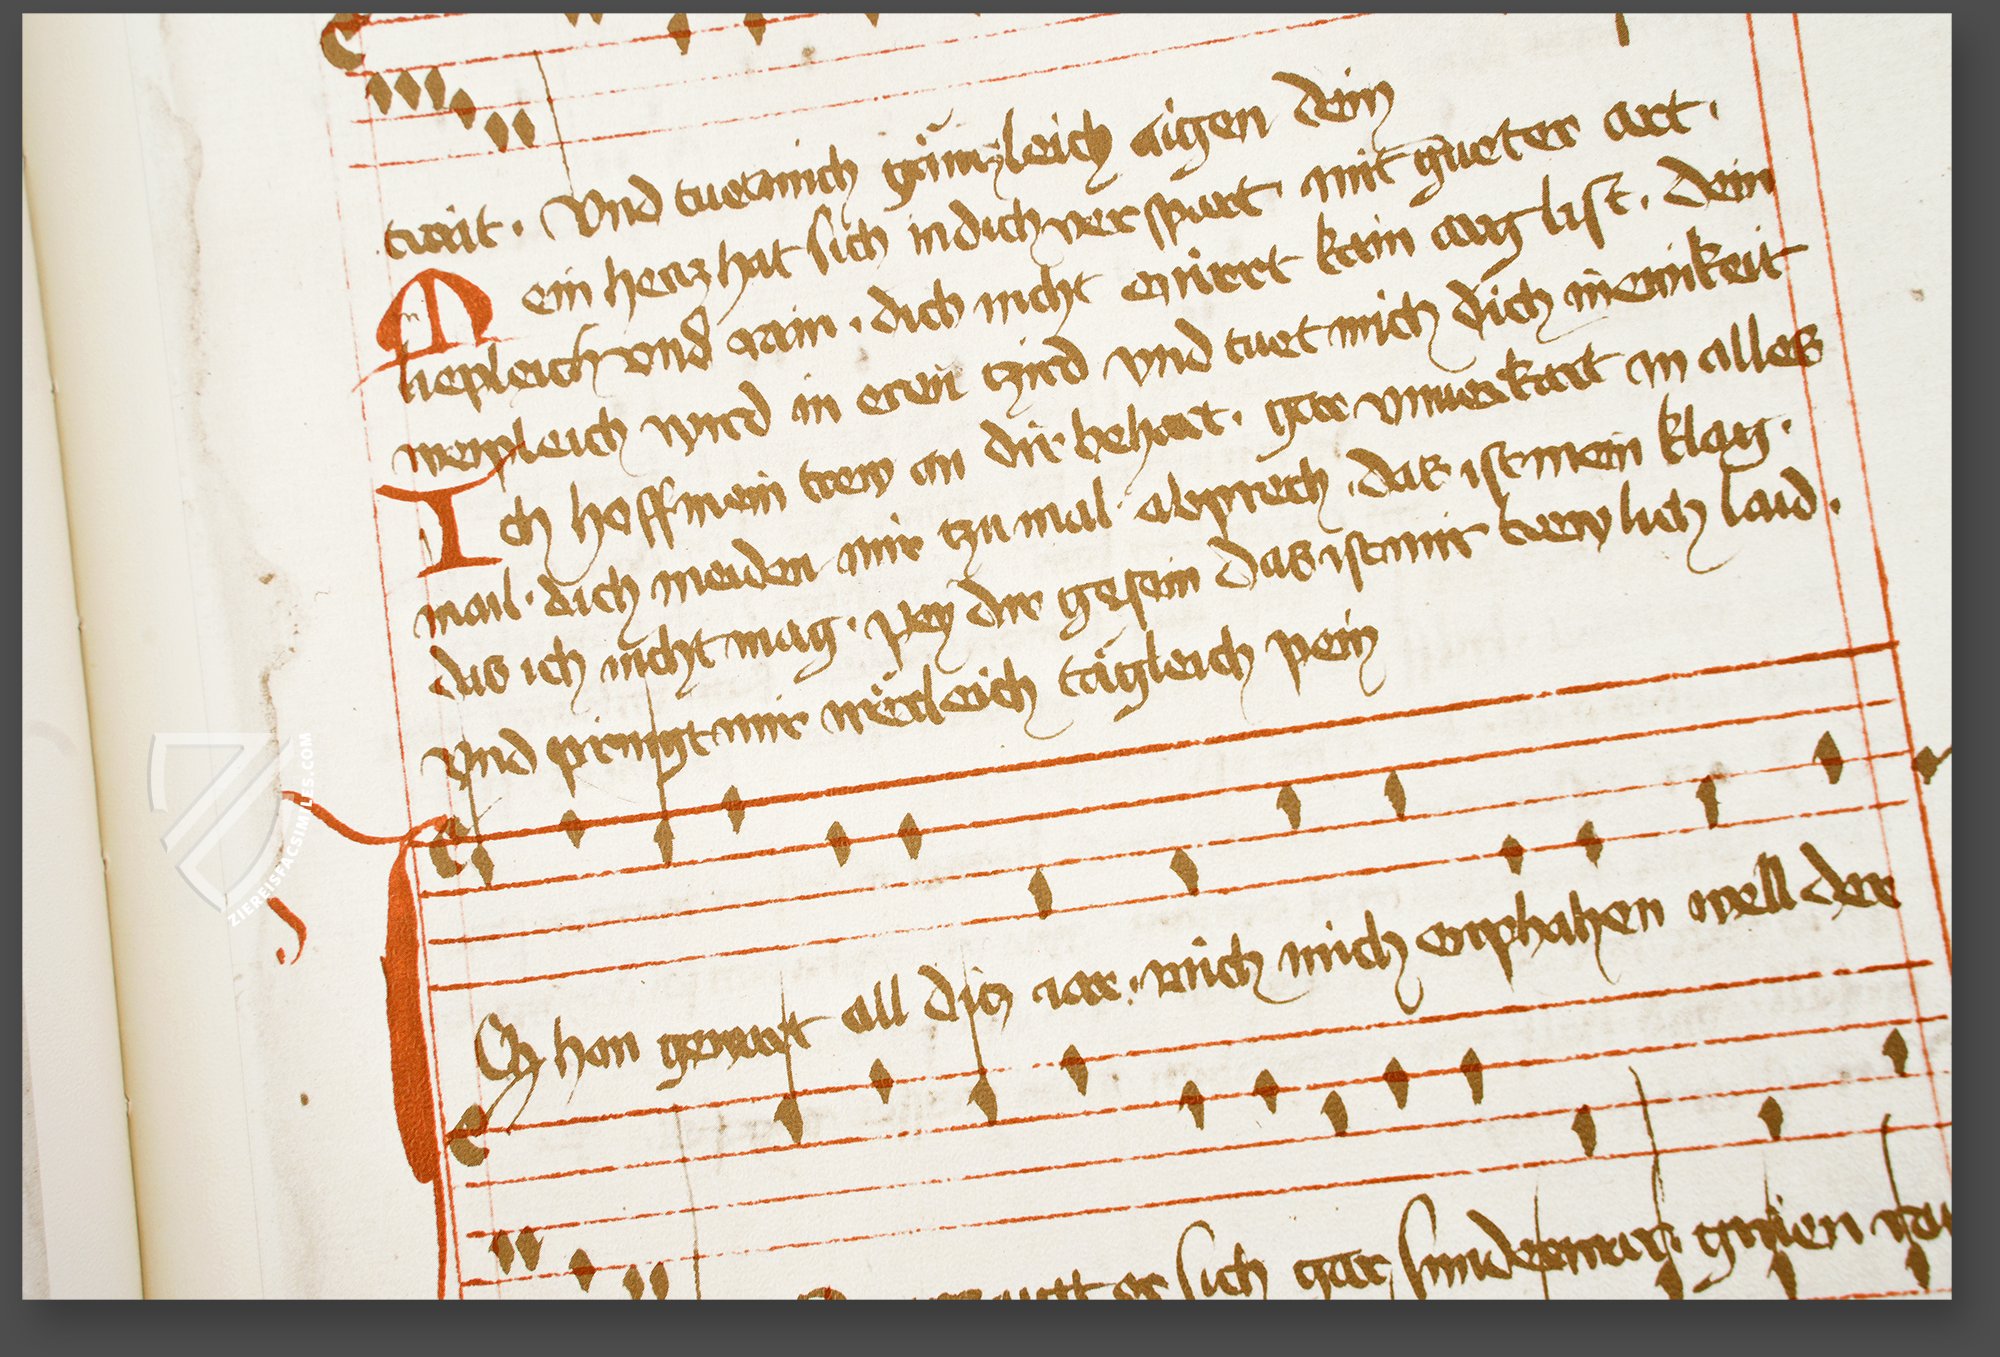 trait · Vnd tuet mich gäinczleich aigen dein
Mein hercz hat sich in dich verspart · mit gueter art ·
liepleich vnd rain · dich nicht enirrt kain arg list · dein
wepleich wird in eren tzird vnd tuet mich dich inewikeit
Ich hoff mein trew an dir behart · gar vnuerkart in alles
mail · dich meiden mir tzu mal abprech · das ist mein klag ·
das ich nicht mag · pey dir gesein das ist mir trewlich laid ·
Vnd pringt mir werleich tägleich pein
Ich han gewart all dicz iar · mich enphahen well der
er sich gar sunder gruen
ZIEREISFACSIMILES.COM